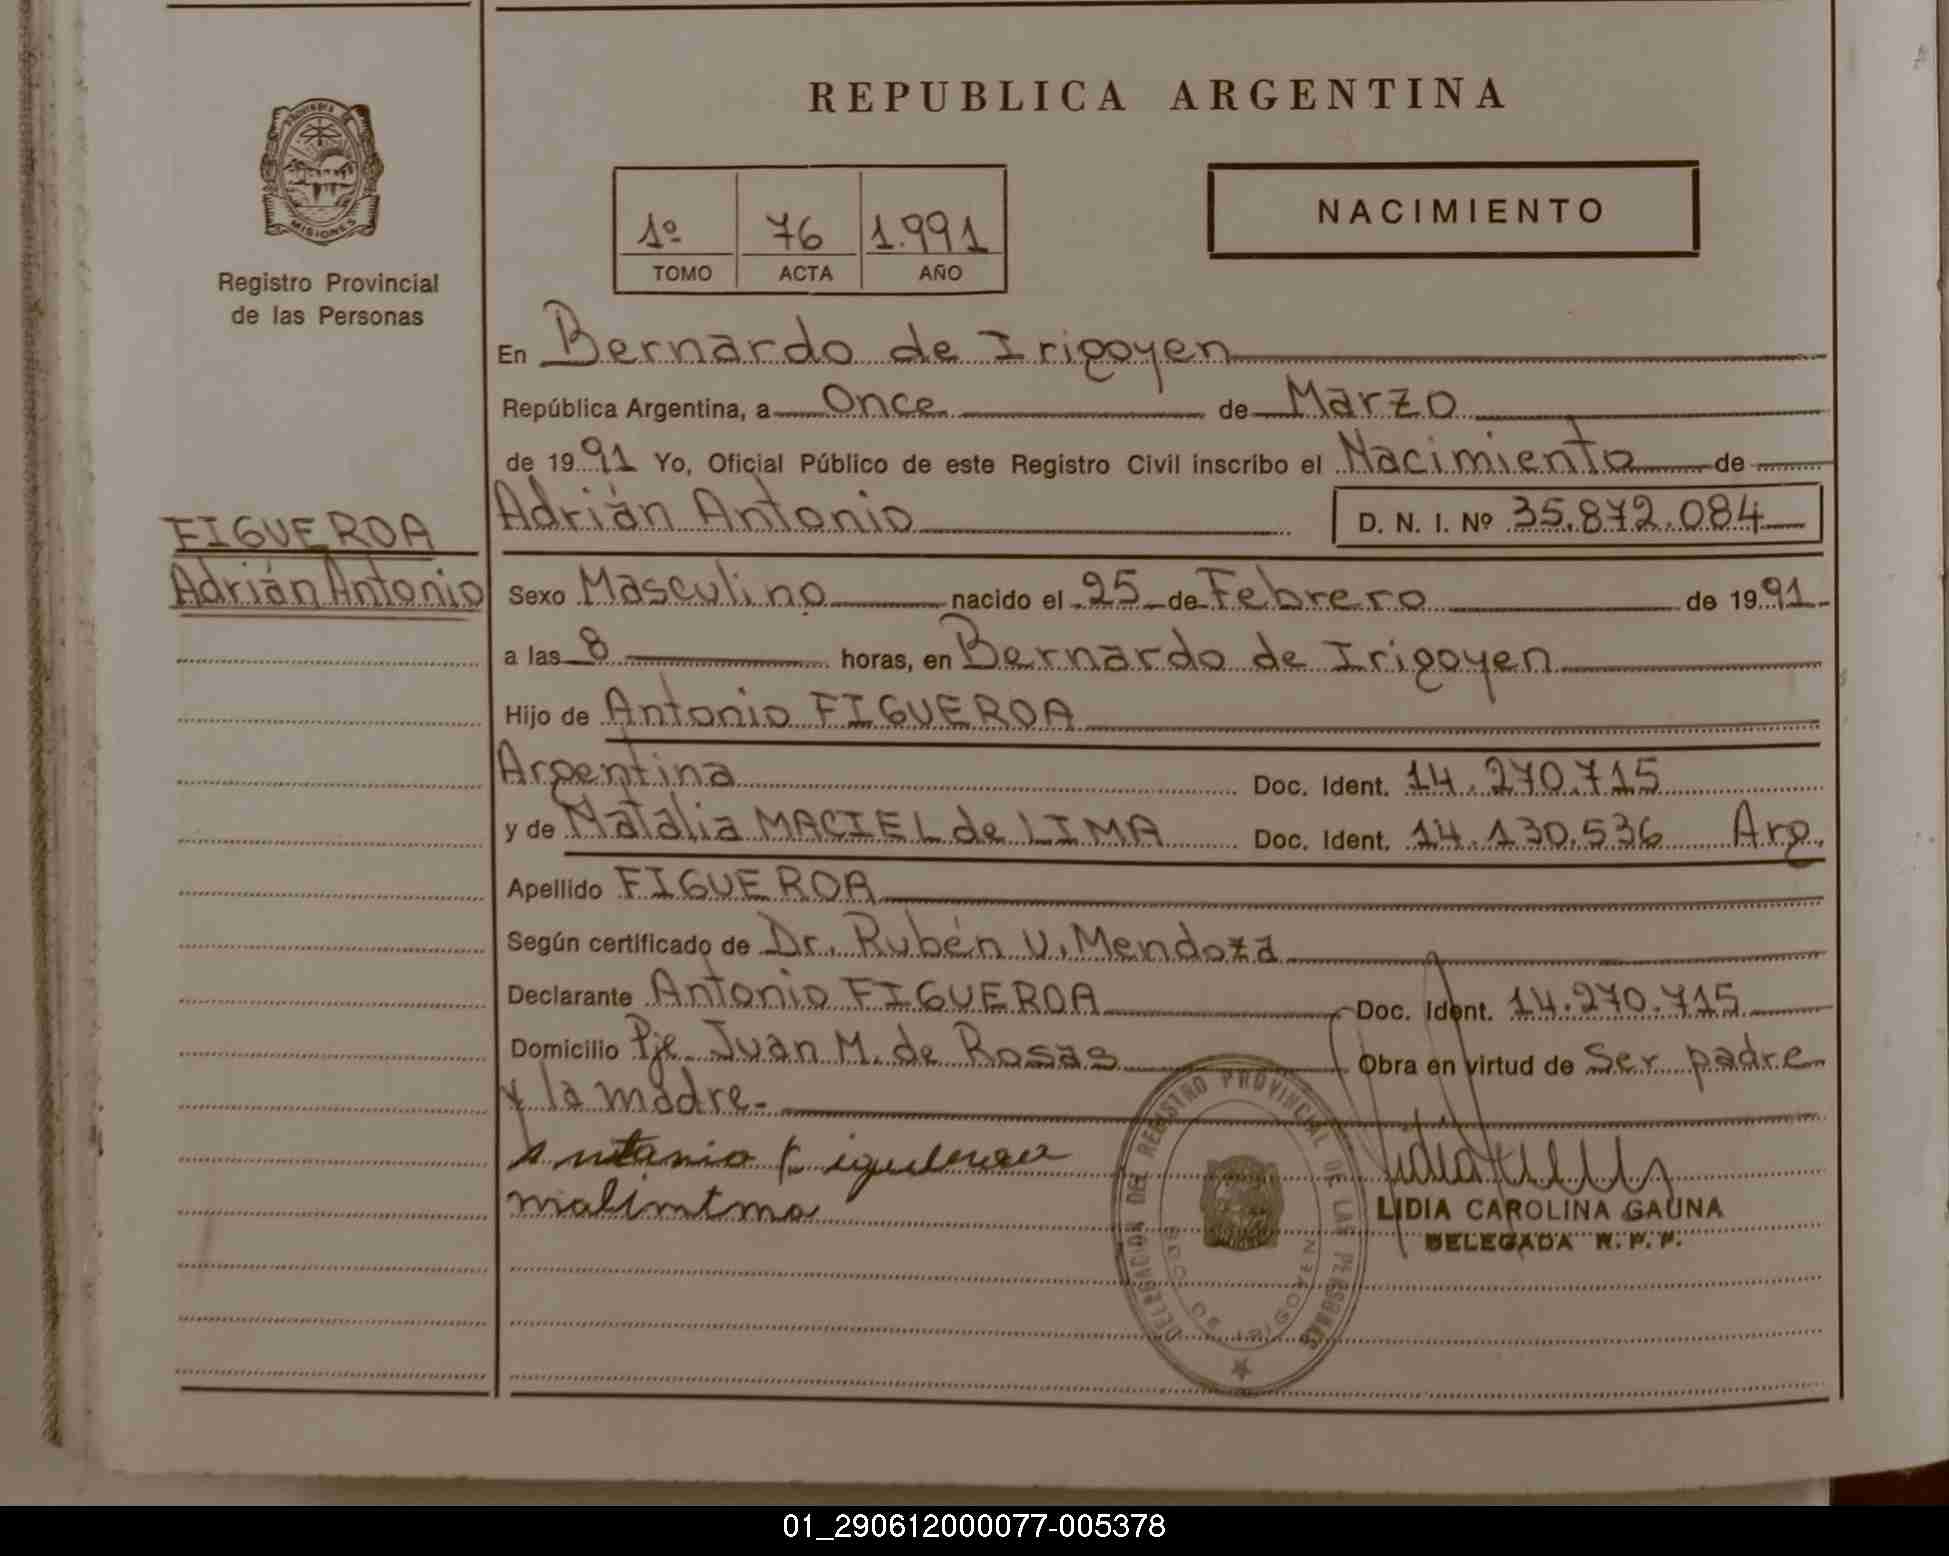 REPUBLICA ARGENTINA
PROVINCIA DE MISIONES
Registro Provincial
de las Personas
1º 76 1.991
TOMO ACTA AÑO
NACIMIENTO
En Bernardo de Irigoyen
República Argentina, a Once de Marzo
de 1991 Yo, Oficial Público de este Registro Civil inscribo el Nacimiento de
Adrián Antonio D. N. I. Nº 35.872.084
FIGUEROA
Adrián Antonio
Sexo Masculino nacido el 25 de Febrero de 1991
a las 8 horas, en Bernardo de Irigoyen
Hijo de Antonio FIGUEROA
Argentina Doc. Ident. 14.270.715
y de Natalia MACIEL de LIMA Doc. Ident. 14.130.536 Arg.
Apellido FIGUEROA
Según certificado de Dr. Rubén U. Mendoza
Declarante Antonio FIGUEROA Doc. Ident. 14.270.715
Domicilio Pje. Juan M. de Rosas Obra en virtud de Ser padre
y la madre.-
Antonio Figueroa
DELEGACION DEL REGISTRO PROVINCIAL DE LAS PERSONAS
BDO. DE IRIGOYEN
LIDIA CAROLINA GAUNA
DELEGADA R. P. P.
01_290612000077-005378